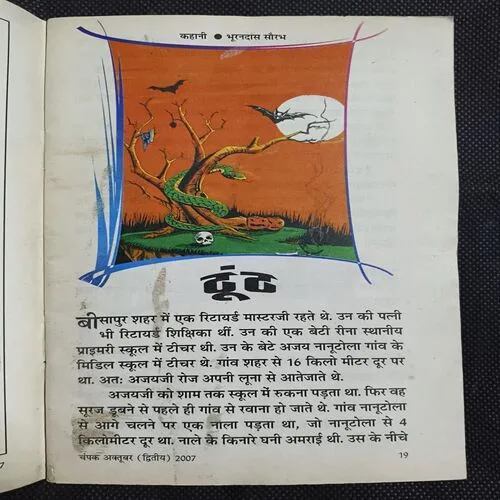 कहानी ● भूरनदास सौरभ
ठूंठ
बीसापुर शहर में एक रिटायर्ड मास्टरजी रहते थे. उन की पत्नी
भी रिटायर्ड शिक्षिका थीं. उन की एक बेटी रीना स्थानीय
प्राइमरी स्कूल में टीचर थी. उन के बेटे अजय नानूटोला गांव के
मिडिल स्कूल में टीचर थे. गांव शहर से 16 किलो मीटर दूर पर
था. अतः अजयजी रोज अपनी लूना से आतेजाते थे.
अजयजी को शाम तक स्कूल में रुकना पड़ता था. फिर वह
सूरज डूबने से पहले ही गांव से रवाना हो जाते थे. गांव नानूटोला
से आगे चलने पर एक नाला पड़ता था, जो नानूटोला से 4
किलोमीटर दूर था. नाले के किनारे घनी अमराई थी. उस के नीचे
चंपक अक्तूबर (द्वितीय) 2007
19